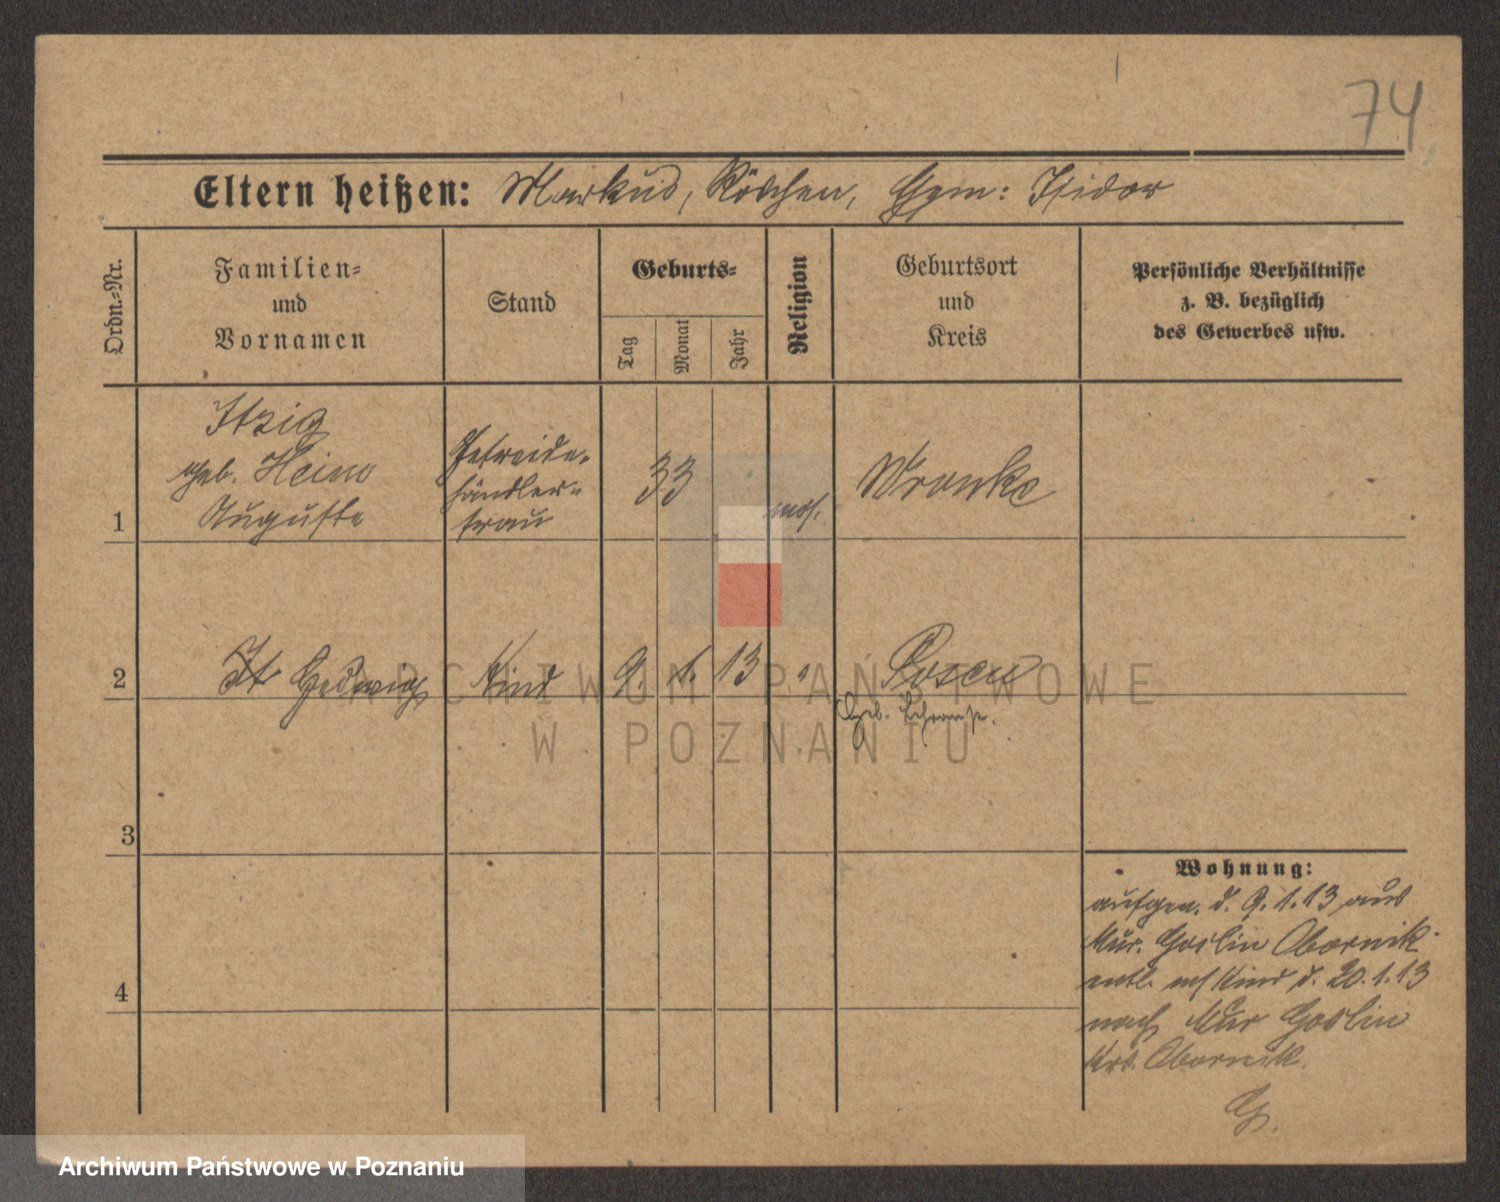 74
Eltern heißen: Markus, Röschen, Ehem: Isidor
Ordn.-Nr.
Familien-
und
Vornamen
Stand
Geburts-
Tag
Monat
Jahr
Religion
Geburtsort
und
Kreis
Persönliche Verhältnisse
z. B. bezüglich
des Gewerbes usw.
1
Itzig
geb. Heim
Auguste
Getreide-
händler-
frau
33
mos.
Wronke
2
Hedwig
Kind
9. 1. 13
"
Posen
Geb.
3
4
Wohnung:
aufgen. d. 9. 1. 13 aus
Mur. Goslin Obornik
entl. mit Kind d. 20. 1. 13
nach Mur Goslin
Krs. Obornik.
G.
ARCHIWUM PAŃSTWOWE
W POZNANIU
Archiwum Państwowe w Poznaniu